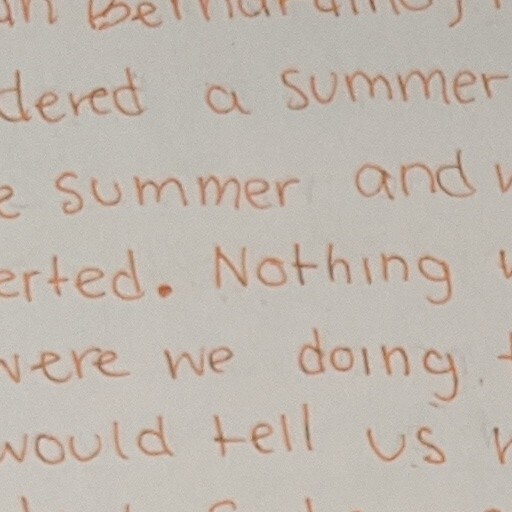 dered a summer
summer and
erted. Nothing
were we doing
would tell us